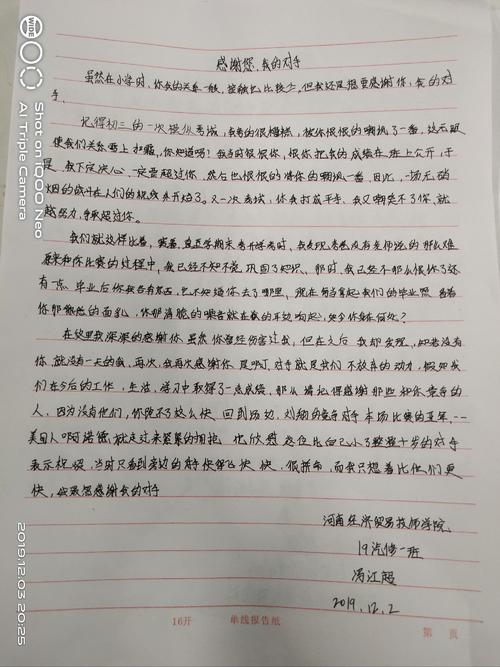 感谢您、我的对手
虽然在小学时、你我的关系一般，接触也比较少。但我还是想要感谢你，我的对
手。
记得初三的一次模拟考试，我考的很糟糕，被你狠狠的嘲讽了一番，这无疑
使我们关系雪上加霜，你知道吗？我当时很恨你，恨你把我的成绩在班上公开，于
是，我下定决心、一定要超过你、然后也狠狠的将你的嘲讽一番、因此，一场无硝
烟的战斗在人们的视线来开始了。又一次考试，你我打成平手、我又嘲笑不了你、就
越努力，争取超过你。
我们就这样比着，直至学期末考升学考时、我发现考卷没有老师说的那么难
原来和你比赛的过程中，我已经不知不觉巩固了知识、那时，我已经不那么恨你了还
有一点 毕业后你我各有东西，也不知道你去了哪里，现在每当拿起我们的毕业照 看着
你那熟悉的面孔，你那清脆的嗓音就在我的耳边响起，如今你身在何处？
在这里我深深的感谢你，虽然你曾经伤害过我，但在之后 我却发现，如若没有
你，就没有今天的我，再次，我再次感谢你 是啊，对手就是我们不放弃的动力，假如我
们在今后的工作、生活、学习中取得了一点成绩，那么请记得感谢那些和你竞争的
人，因为没有他们，你跑不了这么快 回到场边，刘翔的竞争对手 本场比赛的亚军，--
美国人，阿诺德，就走过来紧紧的拥抱 也欣然 这位比自己小了整整十岁的对手
表示祝贺，当时只看到旁边的选手快得飞快 快，很拼命，而我只想着比他们更
快，衷心感谢我的对手
河南经济贸易技师学院、
19汽修一班
冯江超
2019.12.2
16开 单线报告纸 第 页
WIDE
Shot on iQOO Neo
AI Triple Camera
2019.12.03 20:25